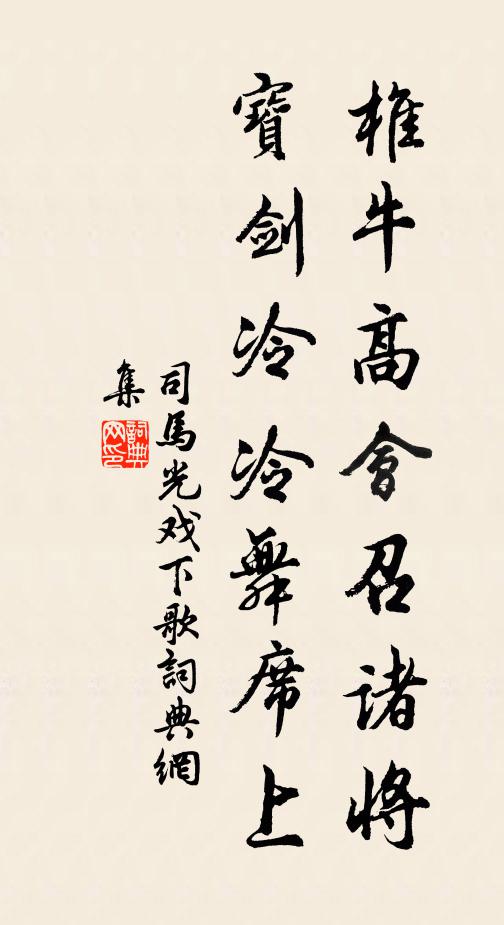 椎牛高會召诸將
寶劍冷冷舞席上
司馬光戏下歌詞典網
集
詞典
网印